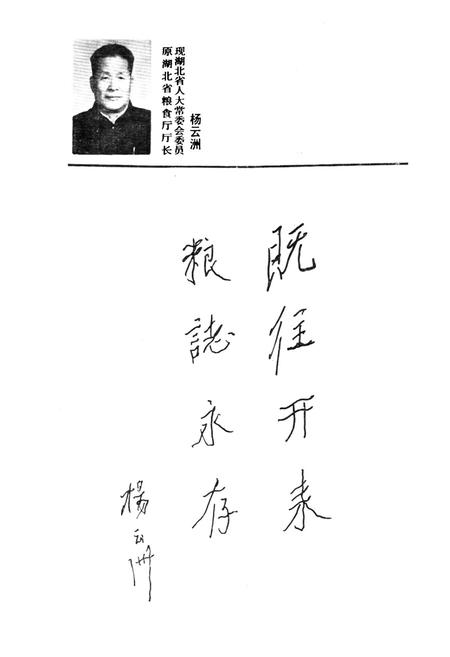 杨云洲
现湖北省人大常委会委员
原湖北省粮食厅厅长
既往开来
粮誌永存
楊云洲